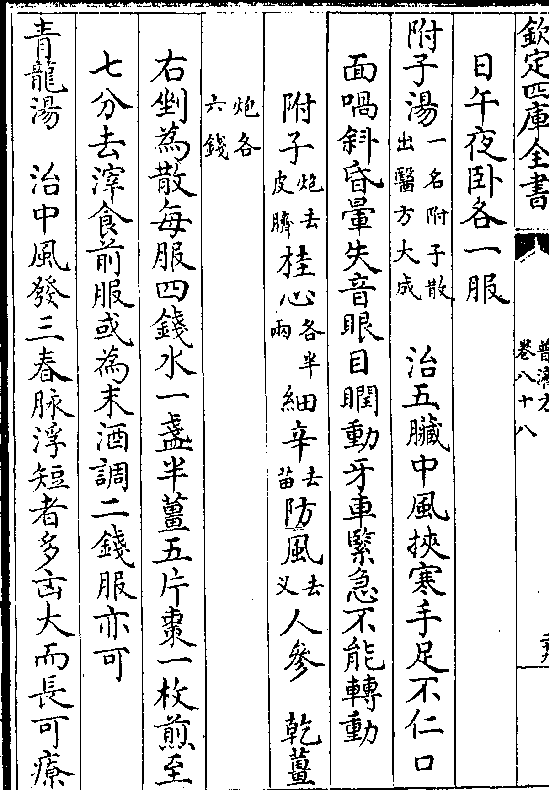 欽定四庫全書
普濟方
卷八十八
日午夜卧各一服
附子湯一名附子散出醫方大成 治五臟中風挾寒手足不仁口
面喎斜昏暈失音眼目瞤動牙車緊急不能轉動
附子炮去皮臍桂心各半兩細辛去苗防風去义人參 乾薑
炮各六錢
右剉為散每服四錢水一盞半薑五片棗一枚煎至
七分去滓食前服或為末酒調二錢服亦可
青龍湯 治中風發三春脉浮短者多凶大而長可療